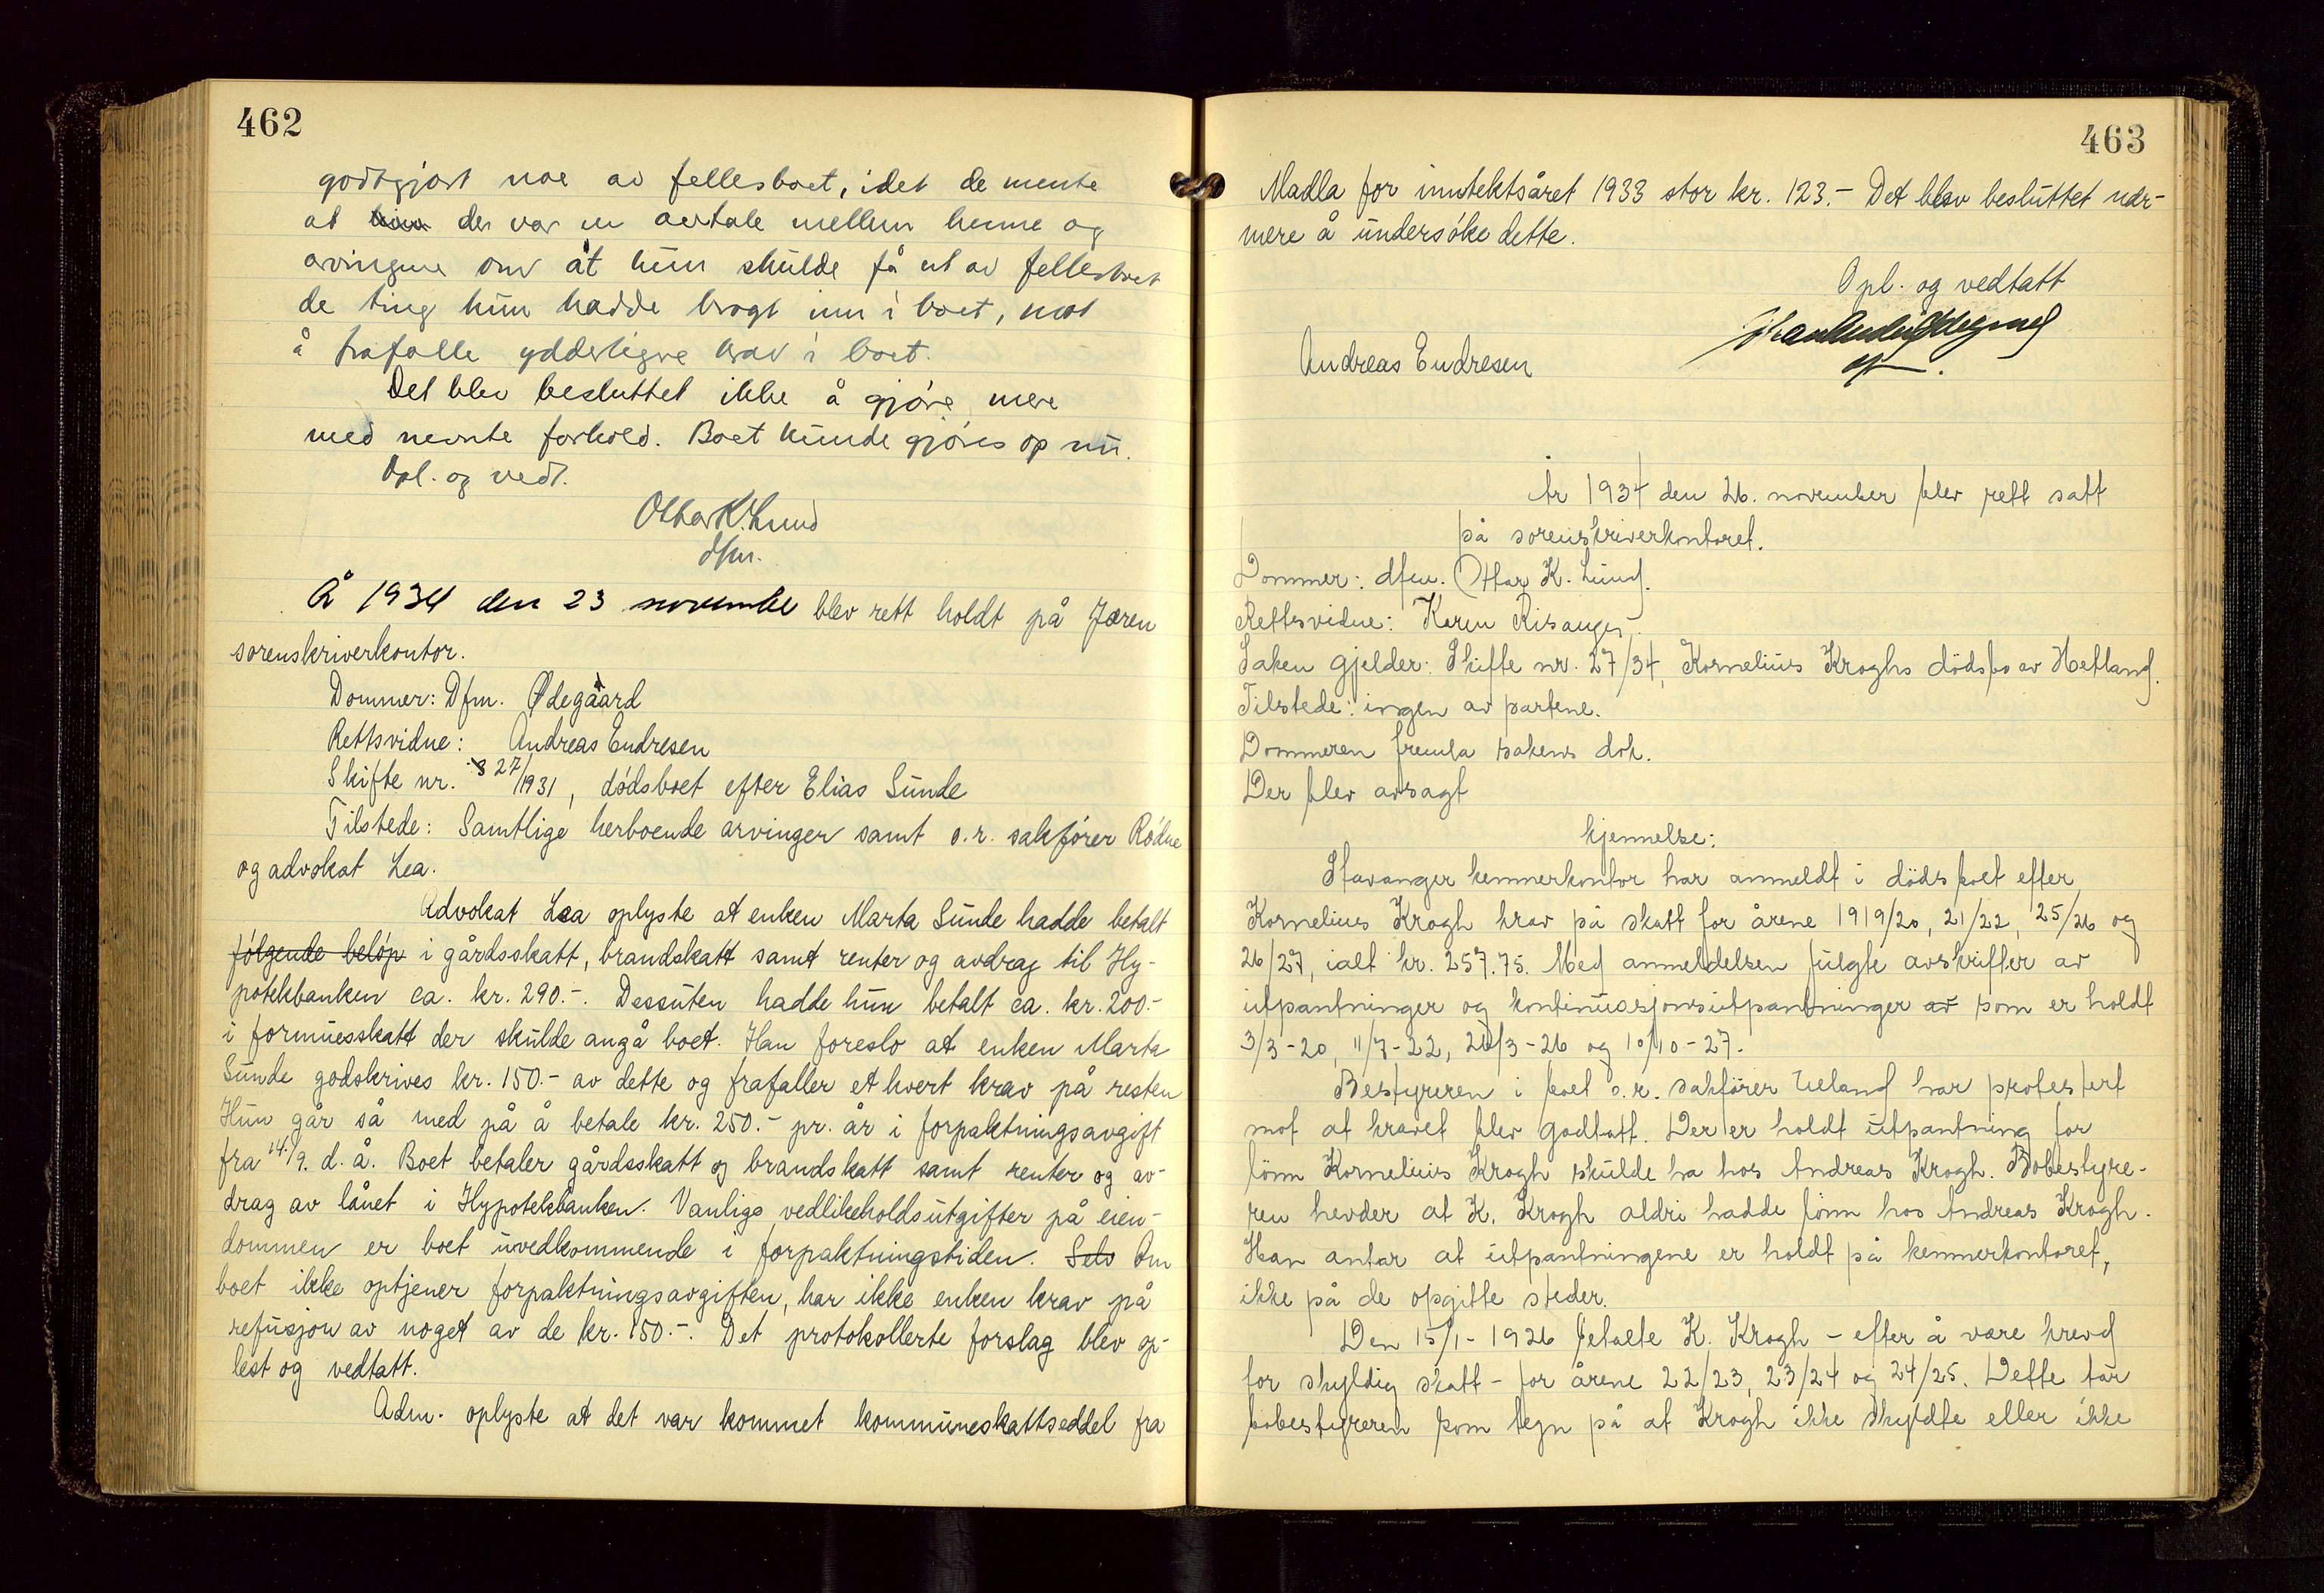 462
godtgjort noe av fellesboet, idet de mente
at hun der var en avtale mellem henne og
arvingene om at hun skulde få ut av fellesboet
de ting hun hadde bragt inn i boet, mot
å frafalle ydderligere krav i boet.
Det blev besluttet ikke å gjøre mere
med nevnte forhold. Boet kunde gjøres op nu.
Opl. og vedt.
Ottar K. Lund
dfm.
År 1934 den 23 november blev rett holdt på Jæren
sorenskriverkontor.
Dommer: Dfm. Ødegaard
Rettsvidne: Andreas Endresen
Skifte nr. 27/1931, dødsboet efter Elias Sunde
Tilstede: Samtlige herboende arvinger samt o.r. sakfører Rødne
og advokat Lea.
Advokat Lea oplyste at enken Marta Sunde hadde betalt
følgende beløp i gårdsskatt, brandskatt samt renter og avdrag til Hy-
potekbanken ca. kr. 290.-. Dessuten hadde hun betalt ca. kr. 200.-
i formuesskatt der skulde angå boet. Han foreslo at enken Marta
Sunde godskrives kr. 150.- av dette og frafaller et hvert krav på resten
Hun går så med på å betale kr. 250.- pr. år i forpaktningsavgift
fra 14/9. d. å. Boet betaler gårdsskatt og brandskatt samt renter og av-
drag av lånet i Hypotekbanken. Vanlige vedlikeholdsutgifter på eien-
dommen er boet uvedkommende i forpaktningstiden. Selv Om
boet ikke optjener forpaktningsavgiften, har ikke enken krav på
refusjon av noget av de kr. 150.-. Det protokollerte forslag blev op-
lest og vedtatt.
Adm. oplyste at det var kommet kommuneskattseddel fra
463
Madla for inntektsåret 1933 stor kr. 123.- Det blev besluttet nær-
mere å undersøke dette.
Opl. og vedtatt
Andreas Endresen
År 1934 den 26. november blev rett satt
på sorenskriverkontoret.
Dommer: dfm. Ottar K. Lund.
Rettsvidne: Karen Risanger.
Saken gjelder: Skifte nr. 27/34, Kornelius Kroghs dödsbo av Hetland.
Tilstede: ingen av partene.
Dommeren fremla sakens dok.
Der blev avsagt
kjennelse:
Stavanger kemnerkontor har anmeldt i dödsboet efter
Kornelius Krogh krav på skatt for årene 1919/20, 21/22, 25/26 og
26/27, ialt kr. 257.75. Med anmeldelsen fulgte avskrifter av
utpantninger og kontinuasjonsutpantninger av som er holdt
3/3-20, 11/7-22, 26/3-26 og 10/10-27.
Bestyreren i boet o.r. sakfører Ueland har protestert
mot at kravet blev godtatt. Der er holdt utpantning for
lönn Kornelius Krogh skulde ha hos Andreas Krogh. Bobestyre-
ren hevder at K. Krogh aldri hadde lönn hos Andreas Krogh.
Han antar at utpantningene er holdt på kemnerkontoret,
ikke på de opgitte steder.
Den 15/1-1926 betalte K. Krogh - efter å være krevd
for skyldig skatt - for årene 22/23, 23/24 og 24/25. Dette tar
bobestyreren som tegn på at Krogh ikke skyldte eller ikke